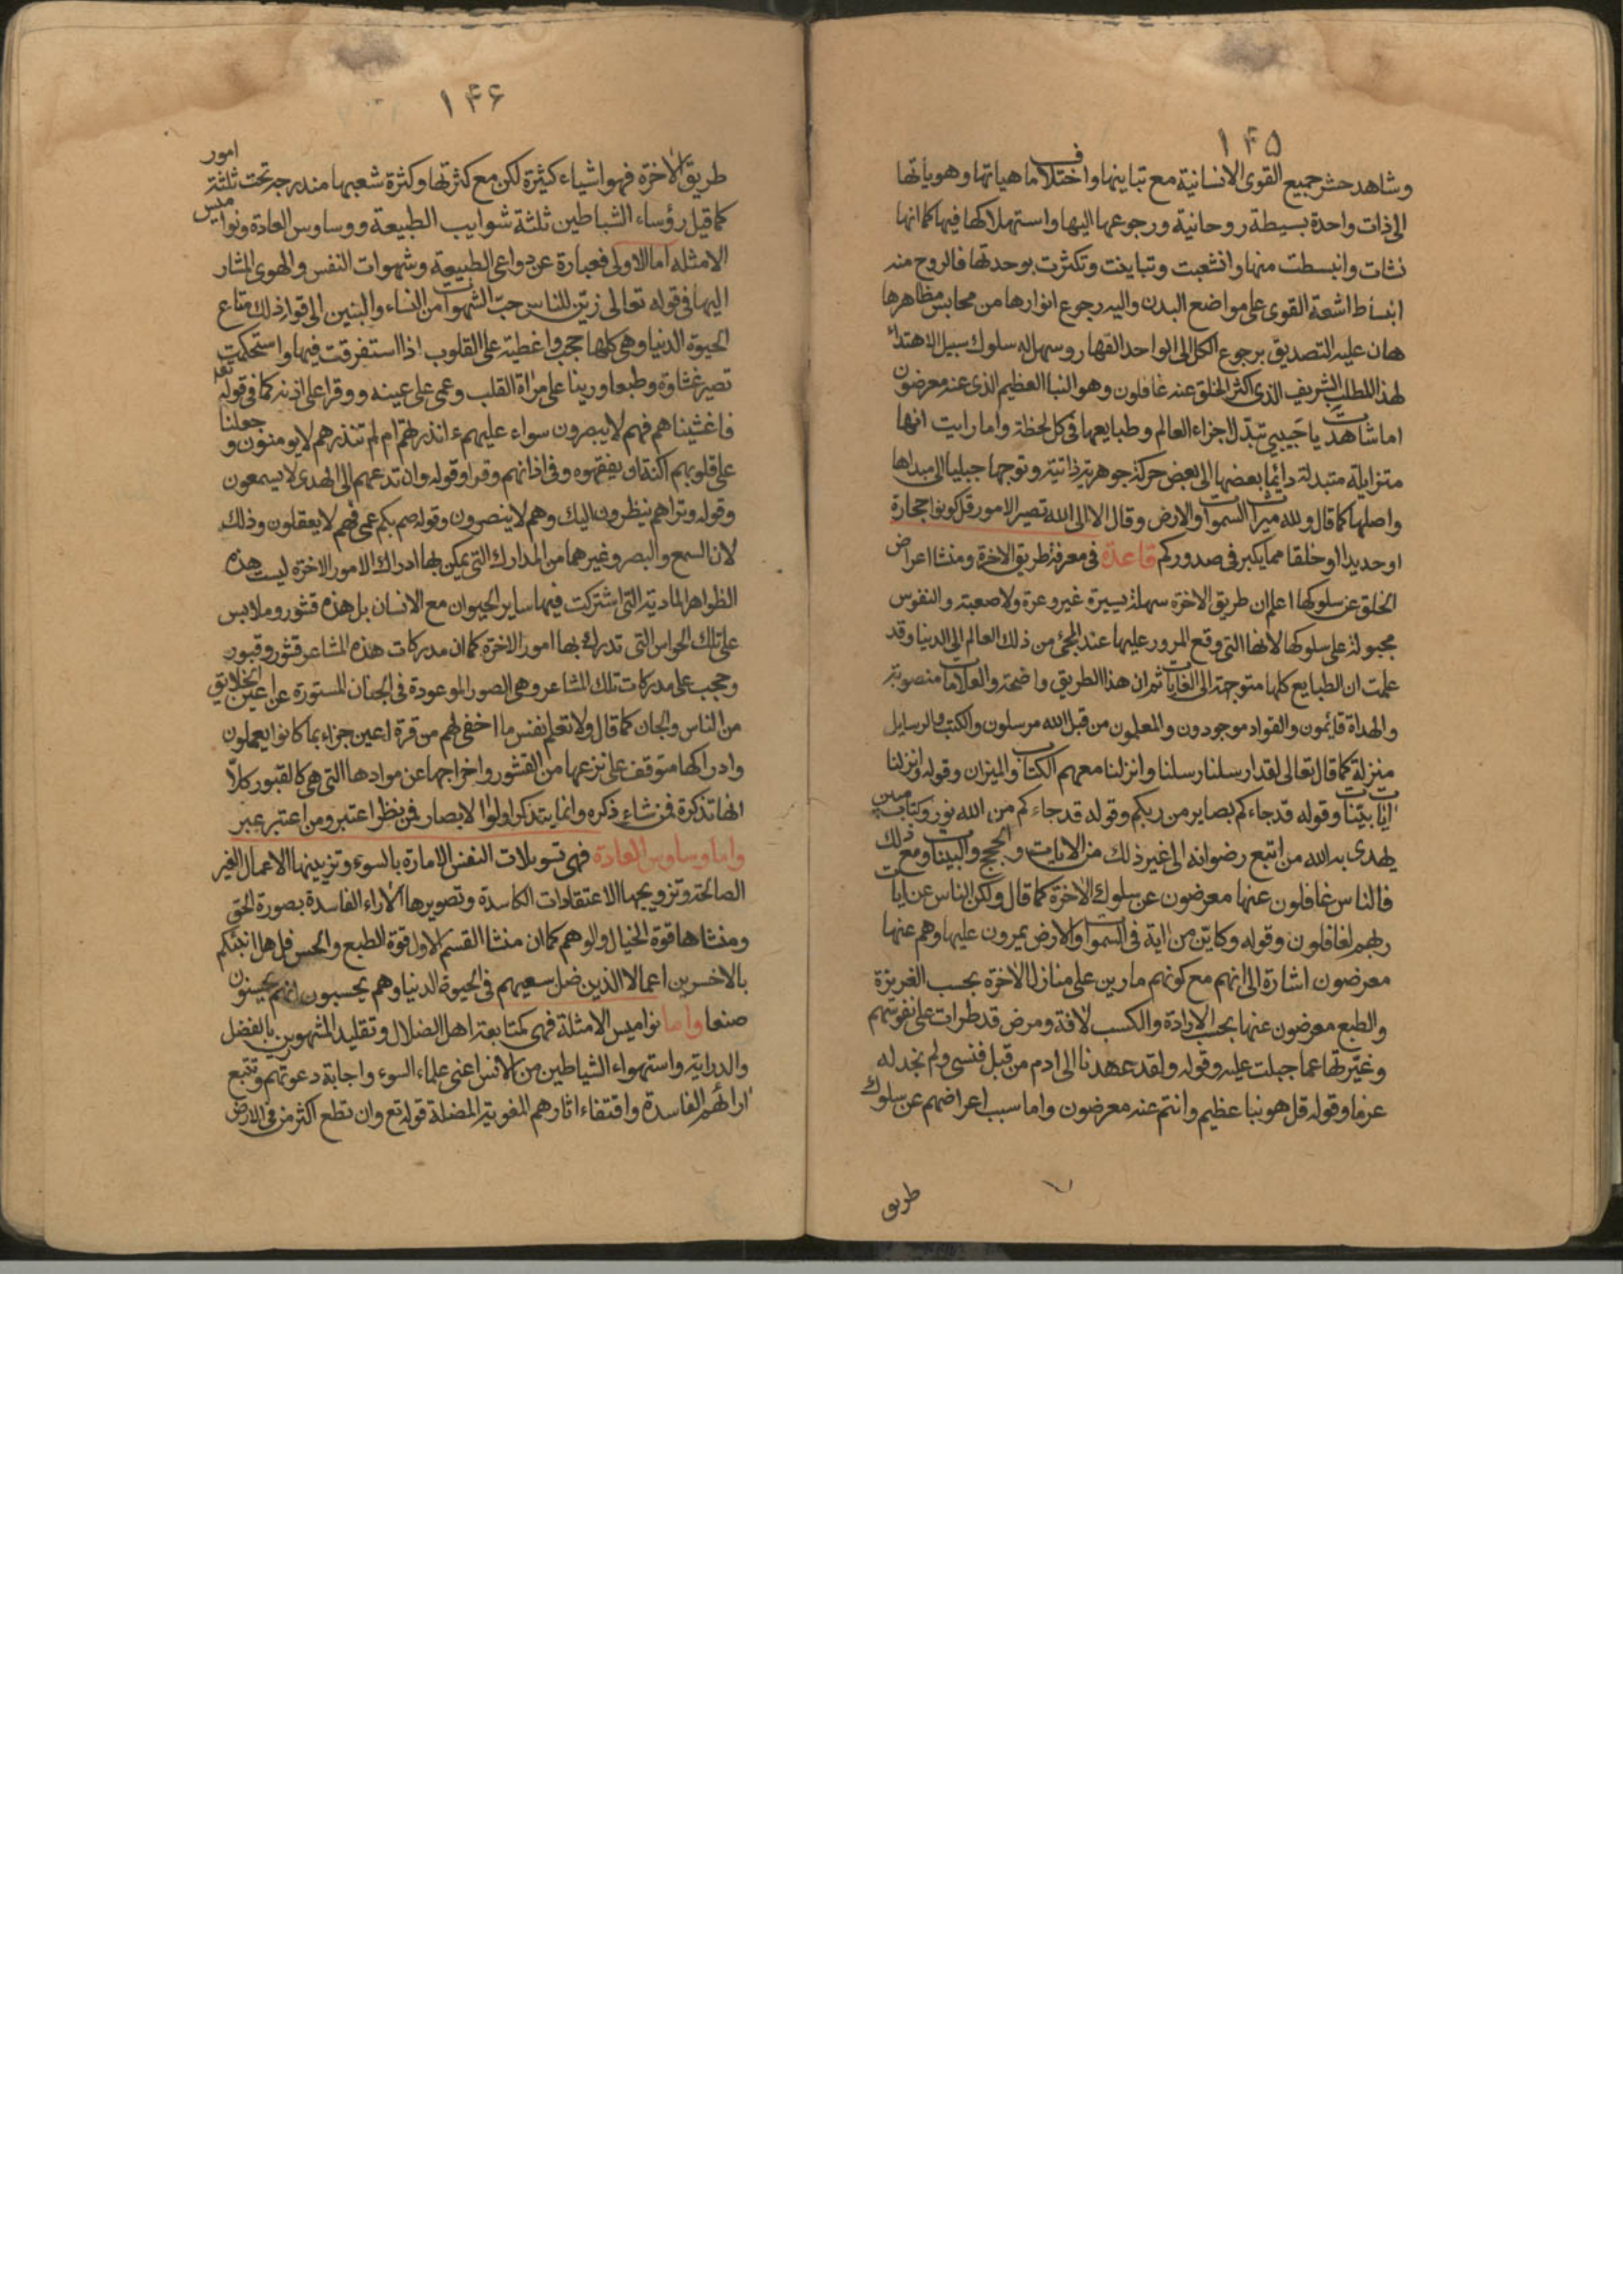 ١٤٥
وشاهد حشر جميع القوى الانسانية مع تباينها واختلاف ماهياتها وهوياتها
الى ذات واحدة بسيطة روحانية ورجوعها اليها واستهلاكها فيها كما انها
نشات وانبسطت منها وانشعبت وتباينت وتكثرت بوحدتها فالروح منه
انبساط اشعة القوى على مواضع البدن واليه رجوع انوارها من محابس مظاهرها
هان عليه التصديق برجوع الكل الى الواحد القهار وسهل له سلوك سبيل الاهتداء
لهذا المطلب الشريف الذى اكثر الخلق عنه غافلون وهو النبا العظيم الذى عنه معرضون
اما شاهدت يا حبيبى تبدل اجزاء العالم وطبايعها فى كل لحظة واما رايت انها
متزايلة متبدلة دائما بعضها الى بعض حركة جوهرية ذاتية وتوجها جبليا الى مبداها
واصلها كما قال ولله ميراث السموات والارض وقال الا الى الله تصير الامور قل كونوا حجارة
او حديدا او خلقا مما يكبر فى صدوركم قاعدة فى معرفة طريق الاخرة ومنشا اعراض
الخلق عن سلوكها اعلم ان طريق الاخرة سهلة يسيرة غير وعرة ولا صعبة والنفوس
مجبولة على سلوكها لانها التى وقع المرور عليها عند المجئ من ذلك العالم الى الدنيا وقد
علمت ان الطبايع كلها متوجهة الى الغايات ثم ان هذا الطريق واضحة والعلامات منصوبة
والهداة قايمون والقواد موجودون والمعلمون من قبل الله مرسلون والكتب والرسايل
منزلة كما قال تعالى لقد ارسلنا رسلنا وانزلنا معهم الكتاب والميزان وقوله وانزلنا
ايات بينات وقوله قد جاءكم بصاير من ربكم وقوله قد جاءكم من الله نور وكتاب مبين
يهدى به الله من اتبع رضوانه الى غير ذلك من الايات والحجج والبينات ومع ذلك
فالناس غافلون عنها معرضون عن سلوك الاخرة كما قال ولكن الناس عن ايات
ربهم لغافلون وقوله وكاين من اية فى السموات والارض يمرون عليها وهم عنها
معرضون اشارة الى انهم مع كونهم مارين على منازل الاخرة بحسب الغريزة
والطبع معرضون عنها بحسب الارادة والكسب لافة ومرض قد طرات على نفوسهم
وغيرتها عما جبلت عليه وقوله ولقد عهدنا الى ادم من قبل فنسى ولم نجد له
عزما وقوله قل هو نبا عظيم وانتم عنه معرضون واما سبب اعراضهم عن سلوك
طريق
١٤٦
طريق الاخرة فهو اشياء كثيرة لكن مع كثرتها وكثرة شعبها مندرجة تحت ثلثة امور
كما قيل رؤساء الشياطين ثلثة شوايب الطبيعة ووساوس العادة ونواميس
الامثله اما الاولى فعبارة عن دواعى الطبيعة وشهوات النفس والهوى المشار
اليها فى قوله تعالى زين للناس حب الشهوات من النساء والبنين الى قوله ذلك متاع
الحيوة الدنيا وهى كلها حجب واغطية على القلوب اذا استغرقت فيها واستحكمت
تصير غشاوة وطبعا ورينا على مراة القلب وعمى على عينه ووقرا على اذنه كما فى قوله تع
فاغشيناهم فهم لا يبصرون سواء عليهم ءانذرتهم ام لم تنذرهم لا يومنون وجعلنا
على قلوبهم اكنة ان يفقهوه وفى اذانهم وقرا وقوله وان تدعهم الى الهدى لا يسمعون
وقوله وتراهم ينظرون اليك وهم لا يبصرون وقوله صم بكم عمى فهم لا يعقلون وذلك
لان السمع والبصر وغيرهما من المدارك التى يمكن بها ادراك الامور الاخرة ليست هذه
الظواهر المادية التى اشتركت فيها ساير الحيوان مع الانسان بل هذه قشور وملابس
على تلك الحواس التى تدرك بها امور الاخرة كما ان مدركات هذه المشاعر قشور وقبور
وحجب على مدركات تلك المشاعر وهى الصور الموعودة فى الجنان المستورة عن اعين الخلايق
من الناس والجان كما قال ولا تعلم نفس ما اخفى لهم من قرة اعين جزاء بما كانوا يعملون
وادراكها متوقف على نزعها من القشور واخراجها عن موادها التى هى كالقبور كلا
انها تذكرة فمن شاء ذكره وانما يتذكر اولوا الابصار فمن نظر اعتبر ومن اعتبر عبر
واما وساوس العادة فهى تسويلات النفس الامارة بالسوء وتزيينها الاعمال الغير
الصالحة وترويجها الاعتقادات الكاسدة وتصويرها الاراء الفاسدة بصورة الحق
ومنشاها قوة الخيال والوهم كما ان منشا القسم الاول قوة الطبع والحس قل هل انبئكم
بالاخسرين اعمالا الذين ضل سعيهم فى الحيوة الدنيا وهم يحسبون انهم يحسنون
صنعا واما نواميس الامثلة فهى كمتابعة اهل الضلال وتقليد المشهورين بالفضل
والدراية واستهواء الشياطين من الانس اعنى علماء السوء واجابة دعوتهم وتتبع
ارائهم الفاسدة واقتفاء اثارهم المغوية المضلة قوله تع وان تطع اكثر من فى الارض